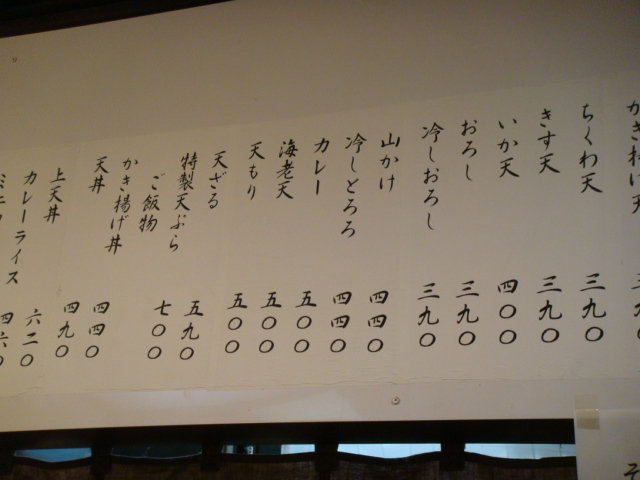 かき揚げ天 三九〇
ちくわ天 三九〇
きす天 三九〇
いか天 四〇〇
おろし 三九〇
冷しおろし 三九〇
山かけ 四四〇
冷しとろろ 四四〇
カレー 五〇〇
海老天 五〇〇
天もり 五〇〇
天ざる 五九〇
特製天ぷら 七〇〇
ご飯物
かき揚げ丼 四四〇
天丼 四九〇
上天丼 六二〇
カレーライス 四六〇
そ